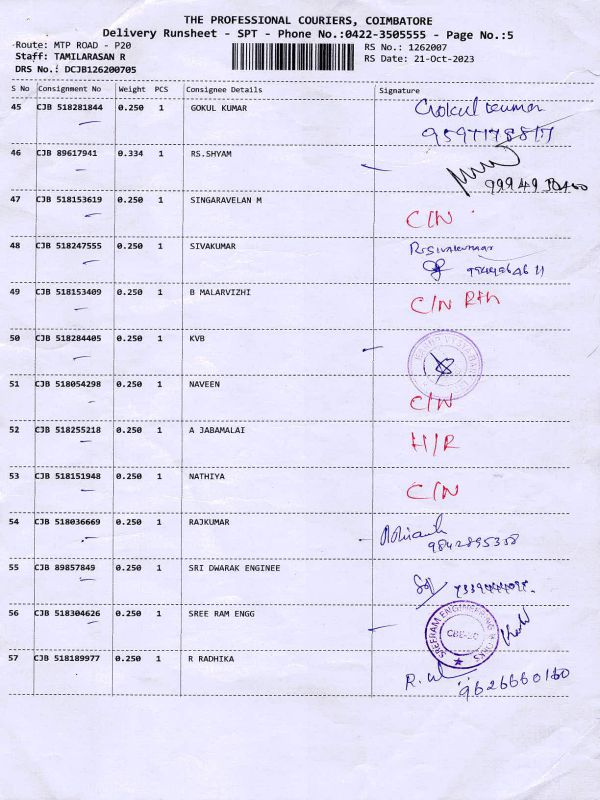 THE PROFESSIONAL COURIERS, COIMBATORE
Delivery Runsheet - SPT - Phone No.:0422-3505555 - Page No.:5
Route: MTP ROAD - P20
RS No.: 1262007
Staff: TAMILARASAN R
RS Date: 21-Oct-2023
DRS No.: DCJB126200705
S No Consignment No Weight PCS Consignee Details Signature
45 CJB 518281844 0.250 1 GOKUL KUMAR Gokul kumar
46 CJB 89617941 0.334 1 RS.SHYAM
47 CJB 518153619 0.250 1 SINGARAVELAN M C/N
48 CJB 518247555 0.250 1 SIVAKUMAR R.Sivakumaar
49 CJB 518153409 0.250 1 B MALARVIZHI C/N
50 CJB 518284405 0.250 1 KVB
51 CJB 518054298 0.250 1 NAVEEN C/N
52 CJB 518255218 0.250 1 A JABAMALAI H/R
53 CJB 518151948 0.250 1 NATHIYA C/N
54 CJB 518036669 0.250 1 RAJKUMAR
9842895338
55 CJB 89857849 0.250 1 SRI DWARAK ENGINEE
56 CJB 518304626 0.250 1 SREE RAM ENGG SREERAM ENGINEERING WORKS
57 CJB 518189977 0.250 1 R RADHIKA
9626660160